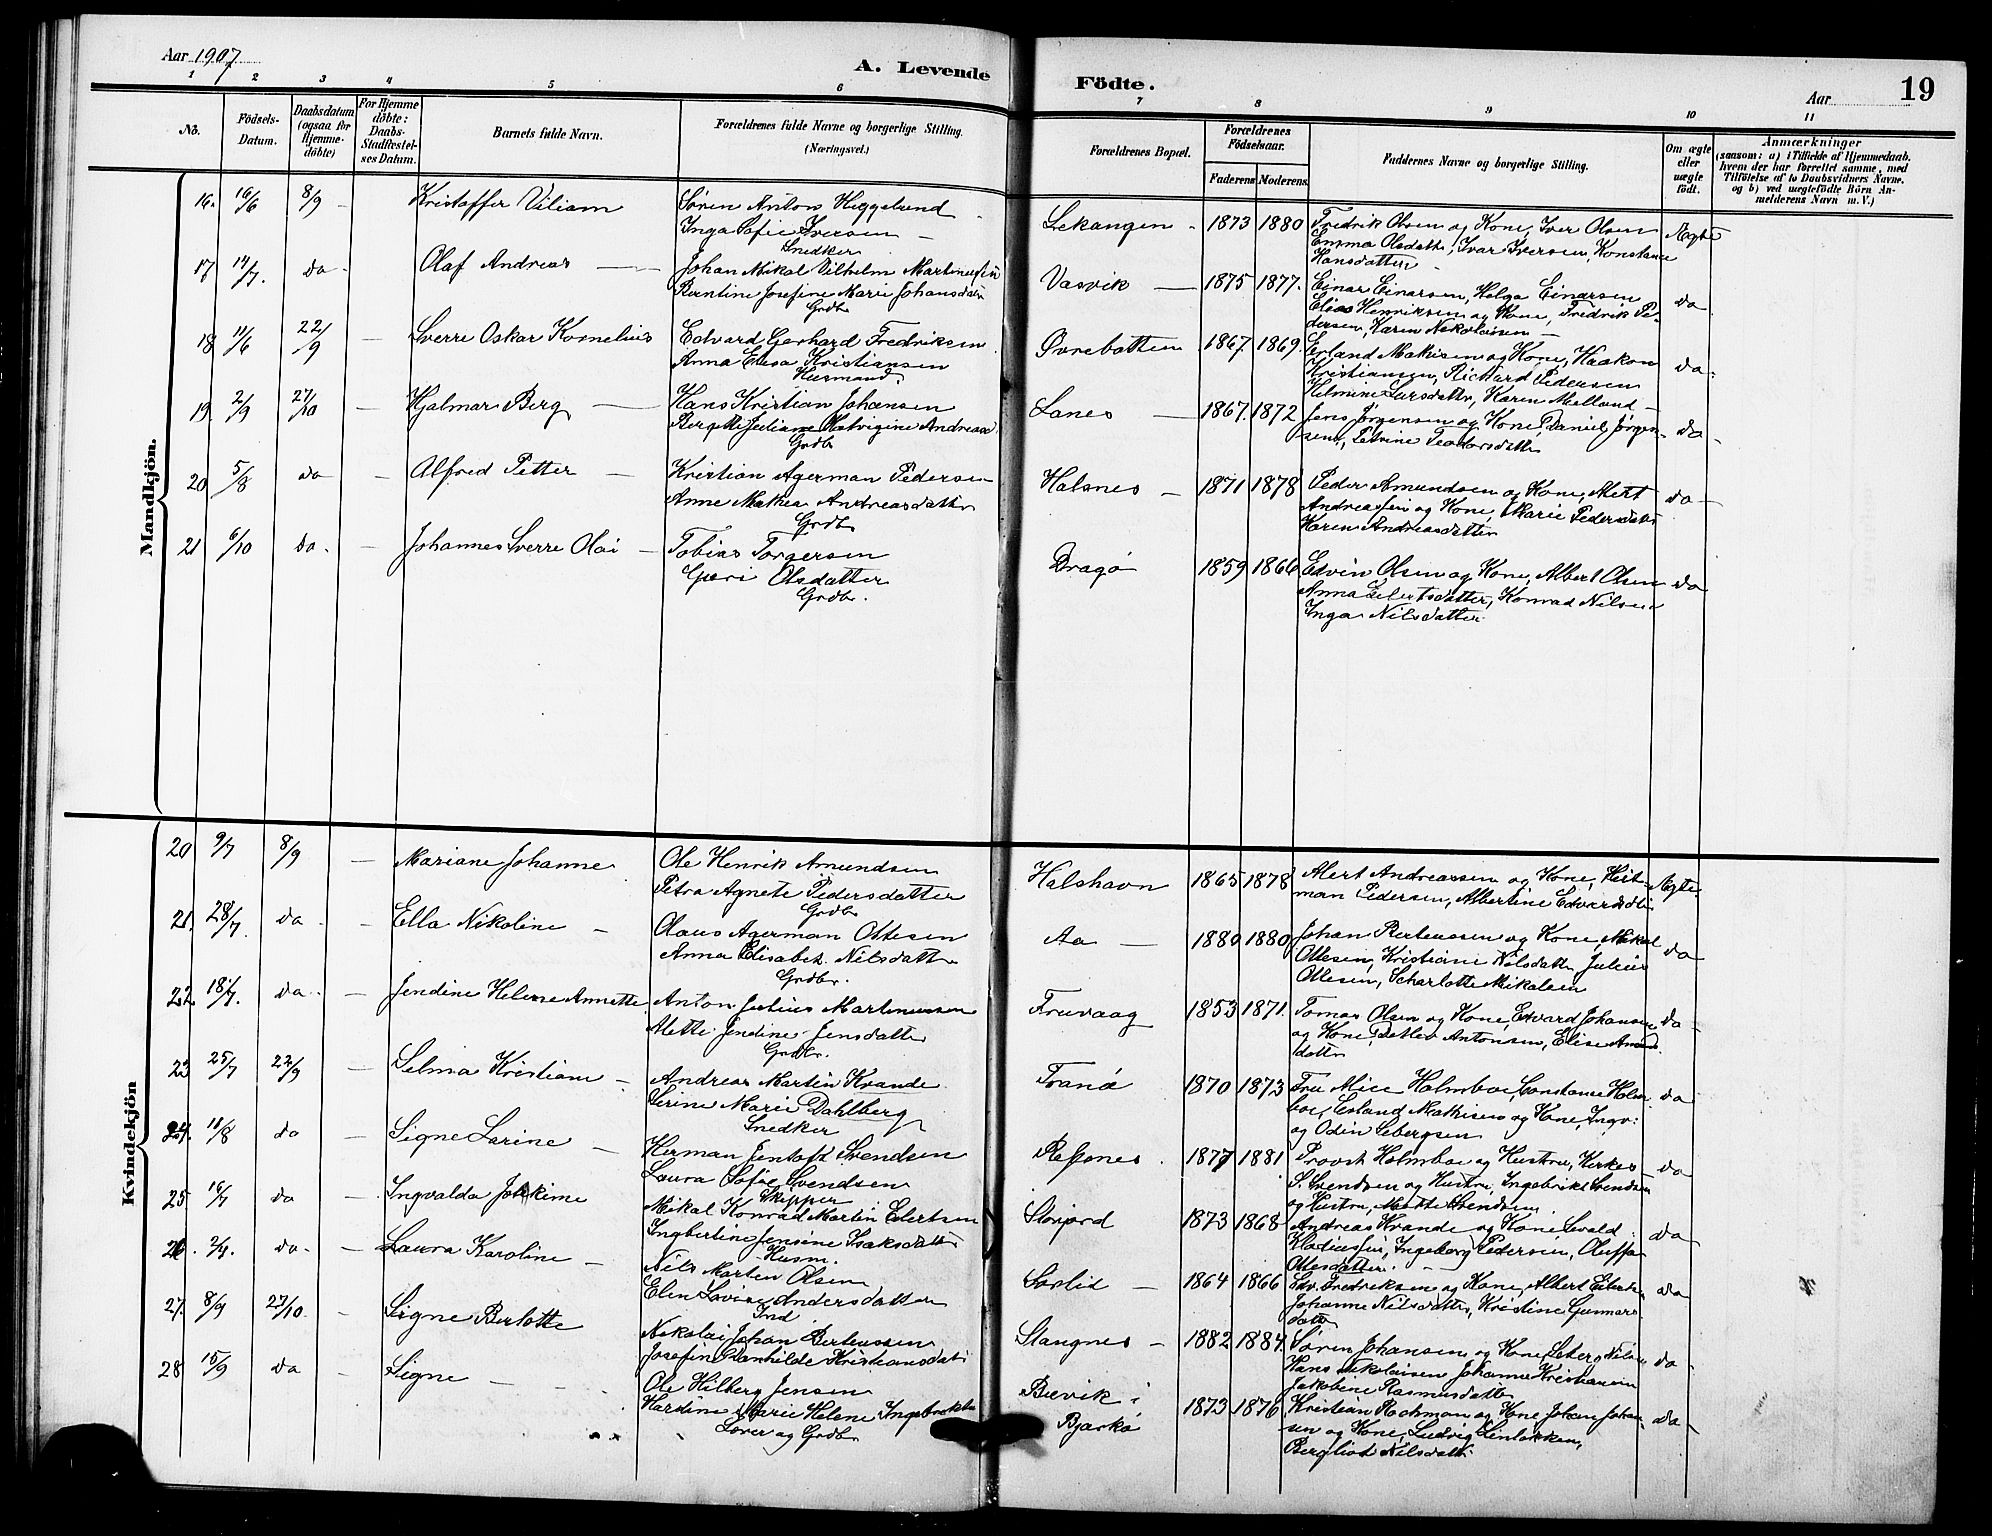 Aar 1907.
A. Levende
Födte.
Aar
19
1 2 3 4 5 6
7 8 9 10 11
No.
Födsels-Datum.
Daabsdatum (ogsaa for Hjemme-döbte)
For Hjemme döbte: Daabs-Stadfæstel-ses Datum.
Barnets fulde Navn.
Forældrenes fulde Navne og borgerlige Stilling. (Næringsvei.)
Forældrenes Bopæl.
Forældrenes Födselsaar.
Faderens Moderens
Faddernes Navne og borgerlige Stilling.
Om ægte eller uægte födt.
Anmærkninger (saasom: a) i Tilfælde af Hjemmedaab, hvem der har forrettet samme, med Tilföielse af to Daabsvidners Navne, og b) ved uægtefödte Börn An-melderens Navn m. V.)
Mandkjön.
16. 16/6 8/9 - Kristoffer Viliam
Søren Anton Heggelund
Inga Sofie Iversen -
Snedker
Lekangen - 1873 1880
Fredrik Olsen og Kone, Iver Olsen
Emma Olsdatter, Ivar Iversen, Konstanse
Hansdatter
Ægte
17 14/7. do - Olaf Andreas
Johan Mikal Vilhelm Martinussen
Berntine Josefine Marie Johansdatr
Grdbr
Vasvik - 1875 1877.
Einar Einarsen, Helga Einarsen
Elias Henriksen og Kone, Fredrik Pe-
dersen, Karen Nikolaisen -
do
18 11/6 22/9 - Sverre Oskar Kornelius
Edvard Gerhard Fredriksen
Anna Elisa Kristiansen
Husmand.
Øvrebotten 1867. 1869.
Erland Mathisen og Kone, Haakon
Kristiansen, Richard Pedersen
Helmine Larsdatter, Karen Melland -
do.
19. 2/9 27/10 - Hjalmar Berg
Hans Kristian Johansen
Bergitte Juliane Hatvigine Andreasd.
Grdbr
Lanes - 1867. 1872
Jens Jørgensen og Kone, Daniel Jørgen-
sen, Petrine Teodorsdatter
do
20 5/8 do - Alfred Petter -
Kristian Agerman Pedersen
Anne Mathea Andreasdatter
Grdbr
Halsnes - 1871 1878
Peder Amundsen og Kone, Alert
Andreassen og Kone, Marie Pedersdatter
Karen Andreasdatter
do -
21 6/10 do - Johannes Sverre Olai -
Tobias Torgersen
Guri Olsdatter
Grdbr.
Dragø 1859 1866
Edvin Olsen og Kone, Albert Olsen
Anna Eilertsdatter, Konrad Nilsen
Inga Nilsdatter
do
Kvindekjön
20 9/7 8/9 - Mariane Johanne
Ole Henrik Amundsen
Petra Agnete Pedersdatter
Grdbr
Halshavn 1865 1878
Alert Andreassen og Kone,
man Pedersen, Albertine Edvardsdtr
Ægte.
21. 28/7. do - Ella Nikoline -
Olaus Agerman Ottesen
Anna Elisabet Nilsdatter
Grdbr.
Aa - 1880 1880
Johan Berteussen og Kone, Mikal
Ottesen, Kristiane Nilsdatter, Julius
Ottesen, Scharlotte Mikalsen
do
22. 18/7. do - Jendine Helene Annette
Anton Julius Martinussen
Alette Jendine Jensdatter
Grdbr.
Fruvaag 1853 1871.
Tomas Olsen og Kone, Edvard Johansen
og Kone, Detlev Antonsen, Elise
datter
do -
23 25/7 22/9 - Selma Kristiane -
Andreas Martin Kvande
Serine Marie Dahlberg
Snedker
Tranø 1870 1873
Fru Alice Holmboe, Constanse Holm-
boe, Erland Mathisen og Kone, Ingv:
og Odin Sebergsen
do
24. 18/8 do - Signe Larine -
Herman Jentoft Svendsen
Laura Sofie Svendsen
Skipper
Refsnes. 1877 1881
Provst Holmboe og Hustru, Kirkes
S. Svendsen og Hustru, Ingebrikt Svendsen
og Hustru, Mette Svendsen.
do
25. 16/7 do - Ingvalda Jokime
Mikal Konrad Martin Edertsen
Ingbertine Jensine Isaksdatter
Husm.
Storjord 1873 1868
Andreas Kvande og Kone
Kladiussen, Ingeborg Pedersen, Oluffa
Ottesdatter.
do
26. do - Laura Karoline -
Nils Morten Olsen
Elen Andersdatter
Ind
Sørlid - 1864 1866
Edv. Fredriksen og Kone, Albert
Johanne Nilsdatter, Kristine Gunnars
datter
do
27. 8/9 27/10 - Signe Berlotte
Nikolai Johan Berteussen
Josefine Ranhilde Kristiansdatr
Stangnes - 1882 1884.
Søren Johansen og Kone, Seberg Nilsen
Hans Nikolaisen Johanne Kristiansen
Jakobine Rasmusdatter
do
28 15/9 do - Signe -
Ole Hilberg Jensen
Hardine Marie Helene Ingebriktsen
Lærer og Grdbr
i Bjarkø 1873 1876
Kristian Rochman og Kone, Johan Johan-
sen og Kone, Ludvig
Bergliot Nilsdatter
do -